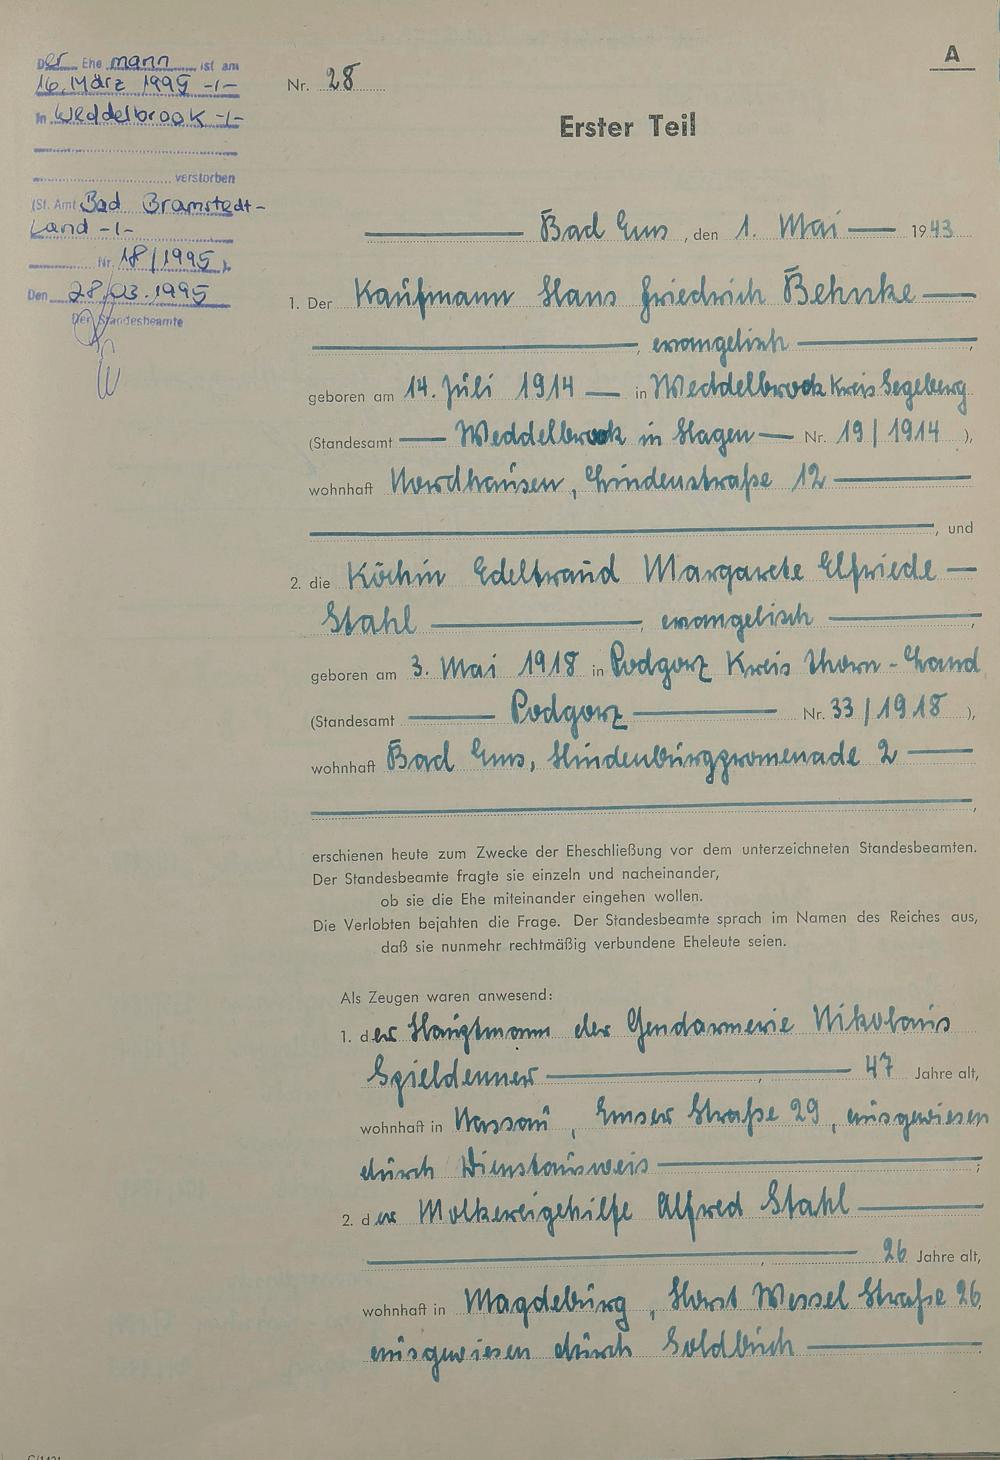 Der Ehe mann ist am
16. März 1995 -/-
in Weddelbrook -/-
verstorben
(St. Amt Bad Bramstedt-
Land -/-
Nr. 18/1995 ).
Den 28.03.1995
Der Standesbeamte
A
Nr. 28
Erster Teil
Bad Ems, den 1. Mai 1943
1. Der Kaufmann Hans Friedrich Behnke
, evangelisch ,
geboren am 14. Juli 1914 in Weddelbrook Kreis Segeberg
(Standesamt Weddelbrook in Hagen Nr. 19/1914 ),
wohnhaft Nordhausen, Lindenstraße 12
, und
2. die Köchin Edeltraud Margarete Elfriede
Stahl , evangelisch ,
geboren am 3. Mai 1918 in Podgorz Kreis Thorn-Land
(Standesamt Podgorz Nr. 33/1918 ),
wohnhaft Bad Ems, Hindenburgpromenade 2
,
erschienen heute zum Zwecke der Eheschließung vor dem unterzeichneten Standesbeamten.
Der Standesbeamte fragte sie einzeln und nacheinander,
ob sie die Ehe miteinander eingehen wollen.
Die Verlobten bejahten die Frage. Der Standesbeamte sprach im Namen des Reiches aus,
daß sie nunmehr rechtmäßig verbundene Eheleute seien.
Als Zeugen waren anwesend:
1. der Hauptmann der Gendarmerie Nikolaus
Spieldenner , 47 Jahre alt,
wohnhaft in Nassau, Emser Straße 29, ausgewiesen
durch Dienstausweis ;
2. der Molkereigehilfe Alfred Stahl
, 26 Jahre alt,
wohnhaft in Magdeburg, Horst Wessel Straße 26,
ausgewiesen durch Soldbuch